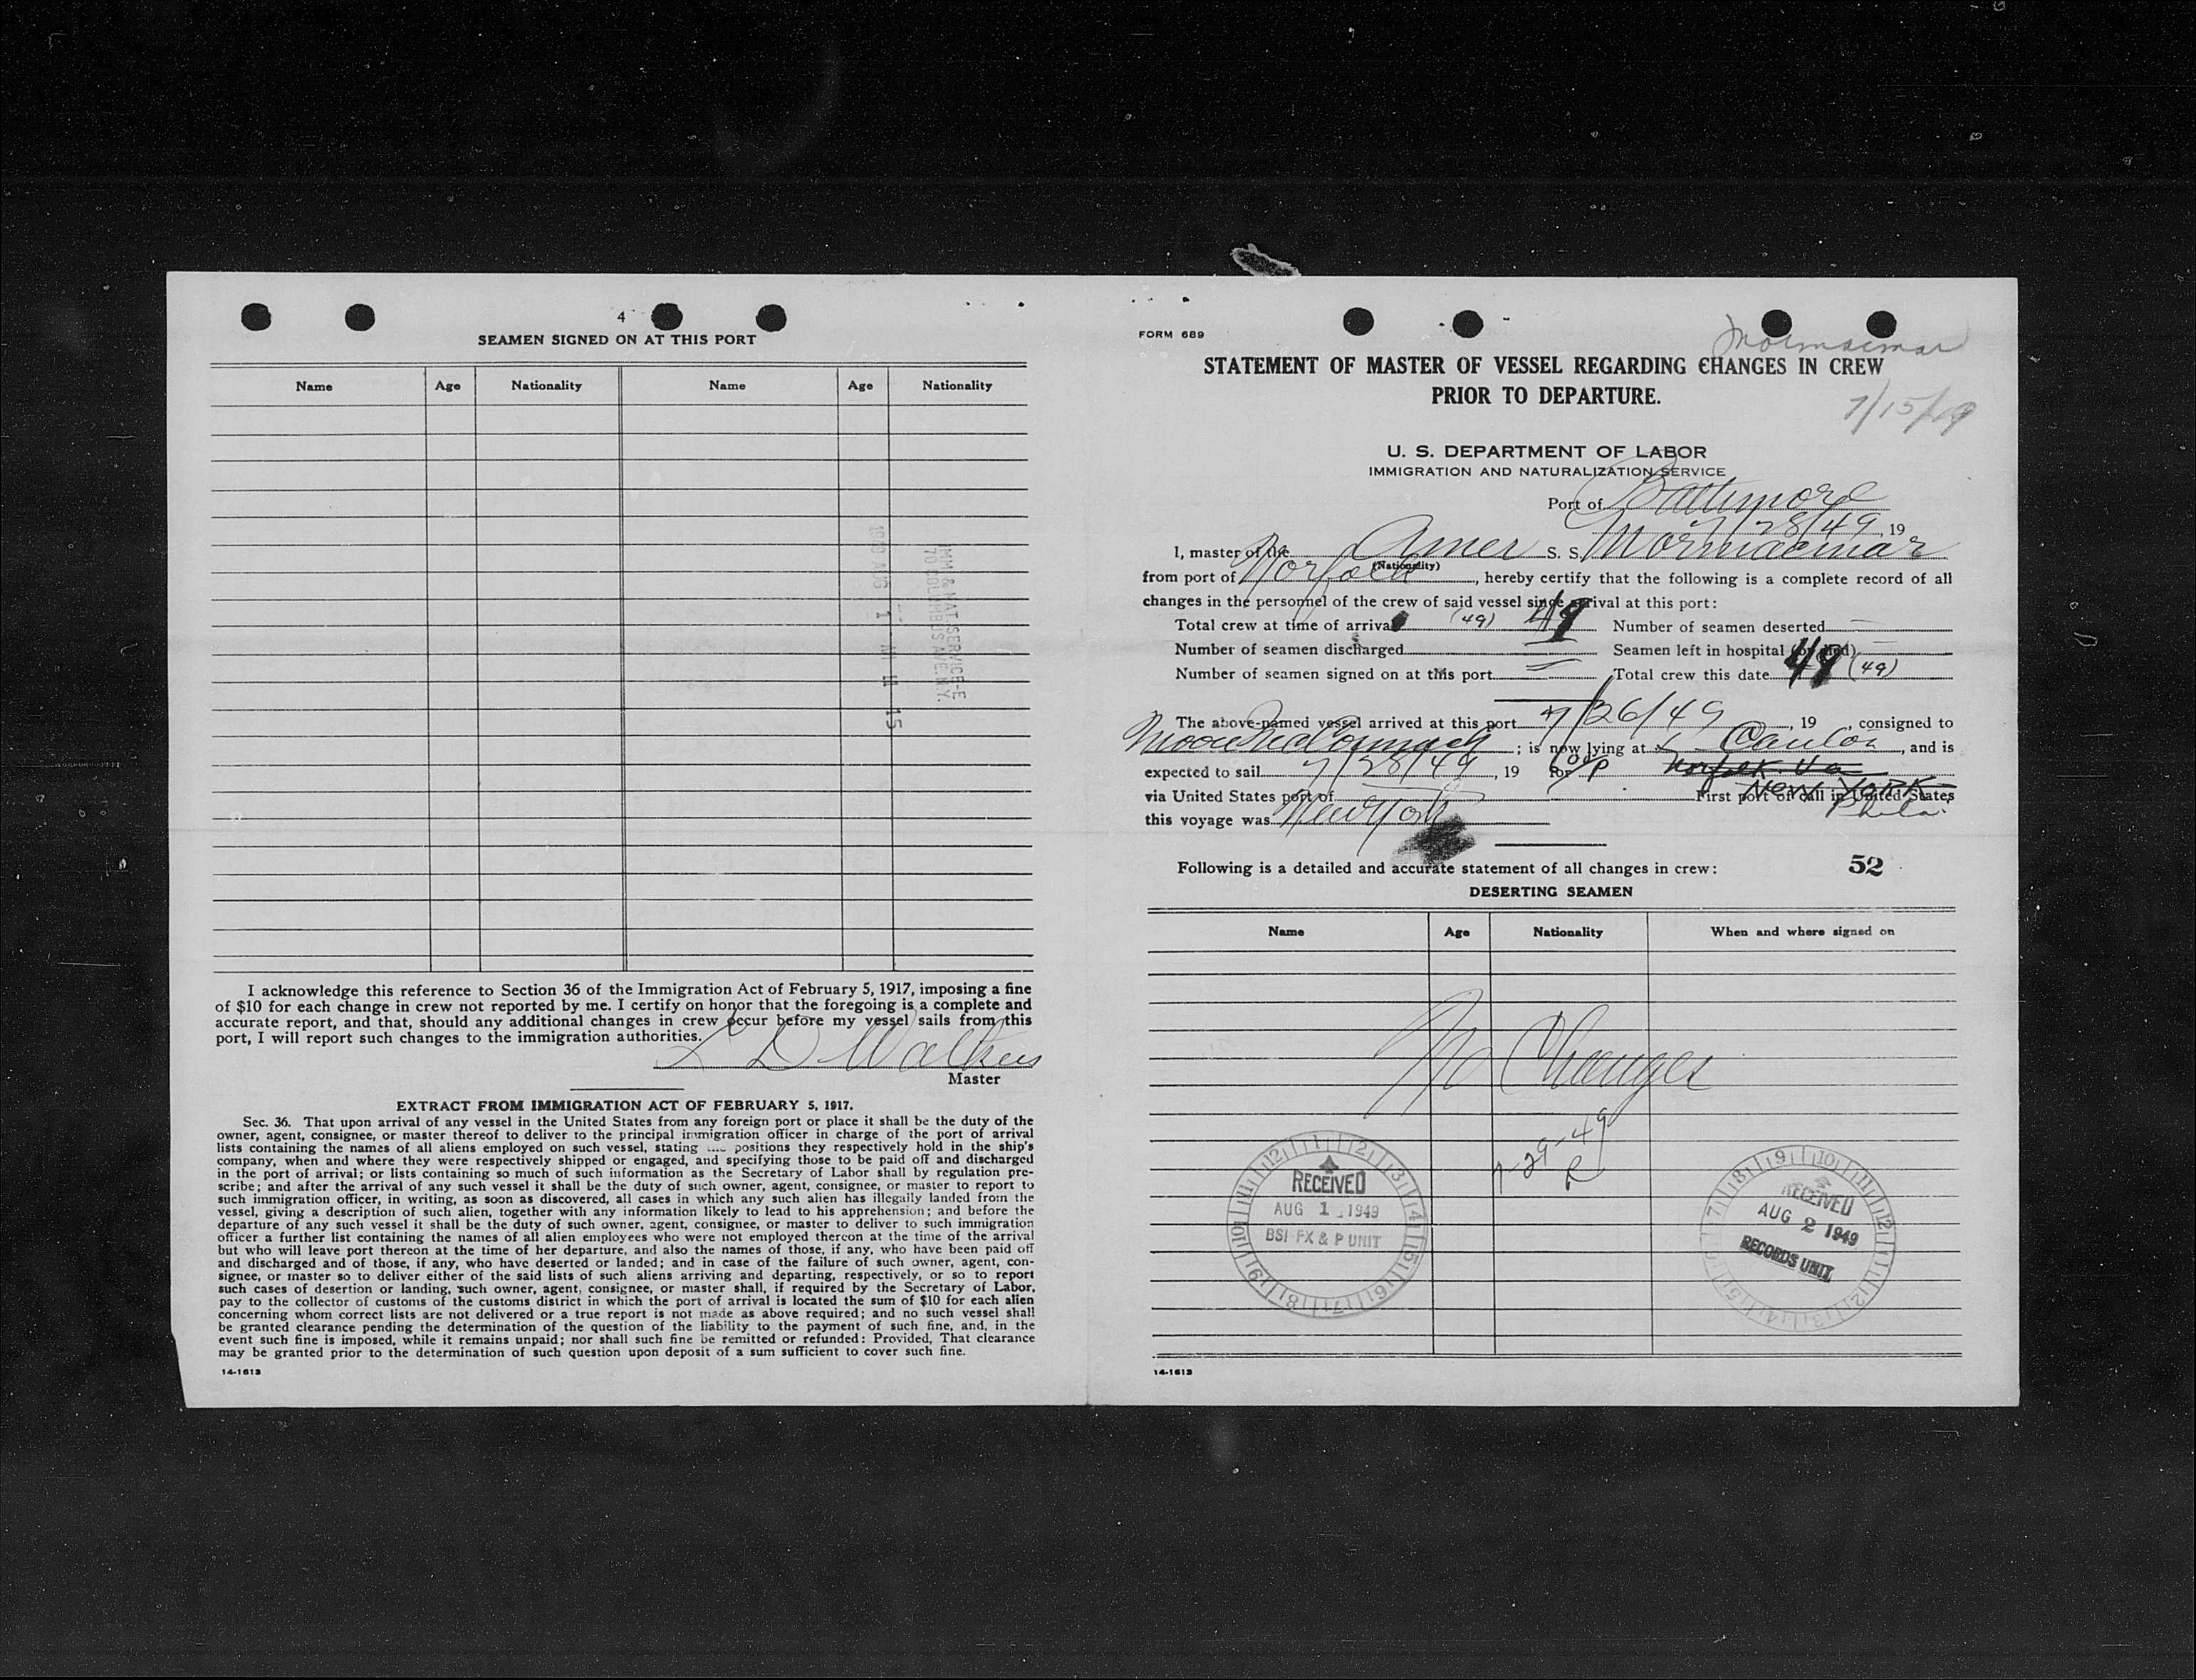 4
SEAMEN SIGNED ON AT THIS PORT
Name Age Nationality Name Age Nationality
IMM & NAT. SERVICE-E
70 COLUMBUS AVE. N.Y.
1949 AUG 1 AM 11 15
I acknowledge this reference to Section 36 of the Immigration Act of February 5, 1917, imposing a fine
of $10 for each change in crew not reported by me. I certify on honor that the foregoing is a complete and
accurate report, and that, should any additional changes in crew occur before my vessel sails from this
port, I will report such changes to the immigration authorities.
L D Walkus
Master
EXTRACT FROM IMMIGRATION ACT OF FEBRUARY 5, 1917.
Sec. 36. That upon arrival of any vessel in the United States from any foreign port or place it shall be the duty of the
owner, agent, consignee, or master thereof to deliver to the principal immigration officer in charge of the port of arrival
lists containing the names of all aliens employed on such vessel, stating the positions they respectively hold in the ship's
company, when and where they were respectively shipped or engaged, and specifying those to be paid off and discharged
in the port of arrival; or lists containing so much of such information as the Secretary of Labor shall by regulation pre-
scribe; and after the arrival of any such vessel it shall be the duty of such owner, agent, consignee, or master to report to
such immigration officer, in writing, as soon as discovered, all cases in which any such alien has illegally landed from the
vessel, giving a description of such alien, together with any information likely to lead to his apprehension; and before the
departure of any such vessel it shall be the duty of such owner, agent, consignee, or master to deliver to such immigration
officer a further list containing the names of all alien employees who were not employed thereon at the time of the arrival
but who will leave port thereon at the time of her departure, and also the names of those, if any, who have been paid off
and discharged and of those, if any, who have deserted or landed; and in case of the failure of such owner, agent, con-
signee, or master so to deliver either of the said lists of such aliens arriving and departing, respectively, or so to report
such cases of desertion or landing, such owner, agent, consignee, or master shall, if required by the Secretary of Labor,
pay to the collector of customs of the customs district in which the port of arrival is located the sum of $10 for each alien
concerning whom correct lists are not delivered or a true report is not made as above required; and no such vessel shall
be granted clearance pending the determination of the question of the liability to the payment of such fine, and, in the
event such fine is imposed, while it remains unpaid; nor shall such fine be remitted or refunded: Provided, That clearance
may be granted prior to the determination of such question upon deposit of a sum sufficient to cover such fine.
14-1613
FORM 689
Mormacmar
STATEMENT OF MASTER OF VESSEL REGARDING CHANGES IN CREW
PRIOR TO DEPARTURE.
7/15/49
U. S. DEPARTMENT OF LABOR
IMMIGRATION AND NATURALIZATION SERVICE
Port of Baltimore
7/28/49, 19
I, master of the Amer S. S. Mormacmar
(Nationality)
from port of Norfolk, hereby certify that the following is a complete record of all
changes in the personnel of the crew of said vessel since arrival at this port:
Total crew at time of arrival (49) 49 Number of seamen deserted
Number of seamen discharged Seamen left in hospital (or died)
Number of seamen signed on at this port Total crew this date 49 (49)
The above-named vessel arrived at this port 7/26/49, 19 , consigned to
Moore McCormack ; is now lying at Canton, and is
expected to sail 7/28/49, 19 for Norfolk. Va
New York
via United States port of First port of call in United States
Phila.
this voyage was New York
Following is a detailed and accurate statement of all changes in crew: 52
DESERTING SEAMEN
Name Age Nationality When and where signed on
No Changes
7-29-49
R
RECEIVED
AUG 1 1949
BSI FX & P UNIT
RECEIVED
AUG 2 1949
RECORDS UNIT
14-1613